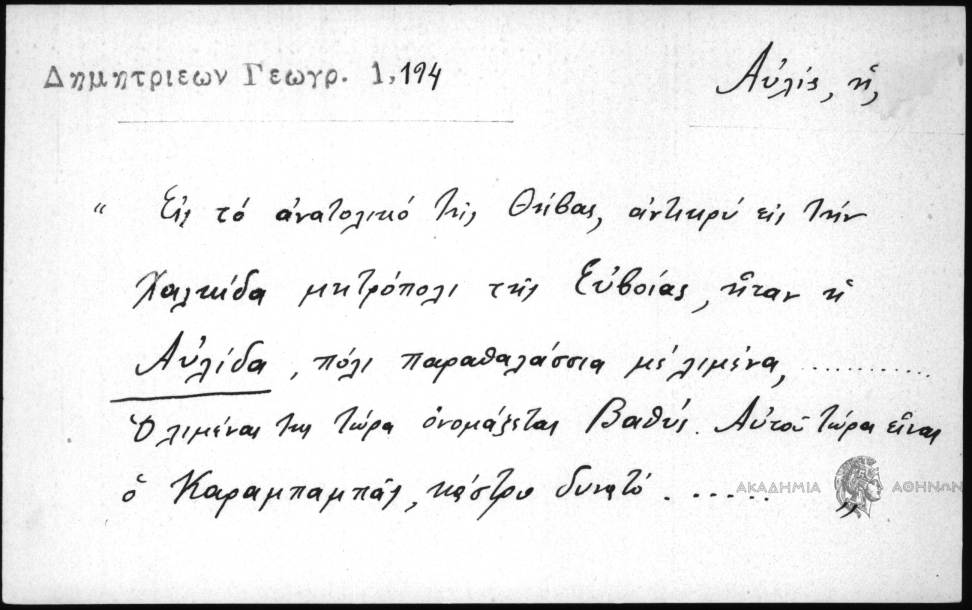 Δημητριεων Γεωγρ. 1,194
Αὐλίς, ἡ,
“ Εἰς τό ἀνατολικό τῆς Θήβας, ἀντικρύ εἰς τήν
Χαλκίδα μητρόπολι τῆς Εὐβοίας, ἦταν ἡ
Αὐλίδα, πόλι παραθαλάσσια μέ λιμένα, ............
Ὁ λιμένας της τώρα ὀνομάζεται Βαθύς. Αὐτοῦ τώρα εἶναι
ὁ Καραμπαμπᾶς, κάστρο δυνατό ...... „
ΑΚΑΔΗΜΙΑ ΑΘΗΝΩΝ